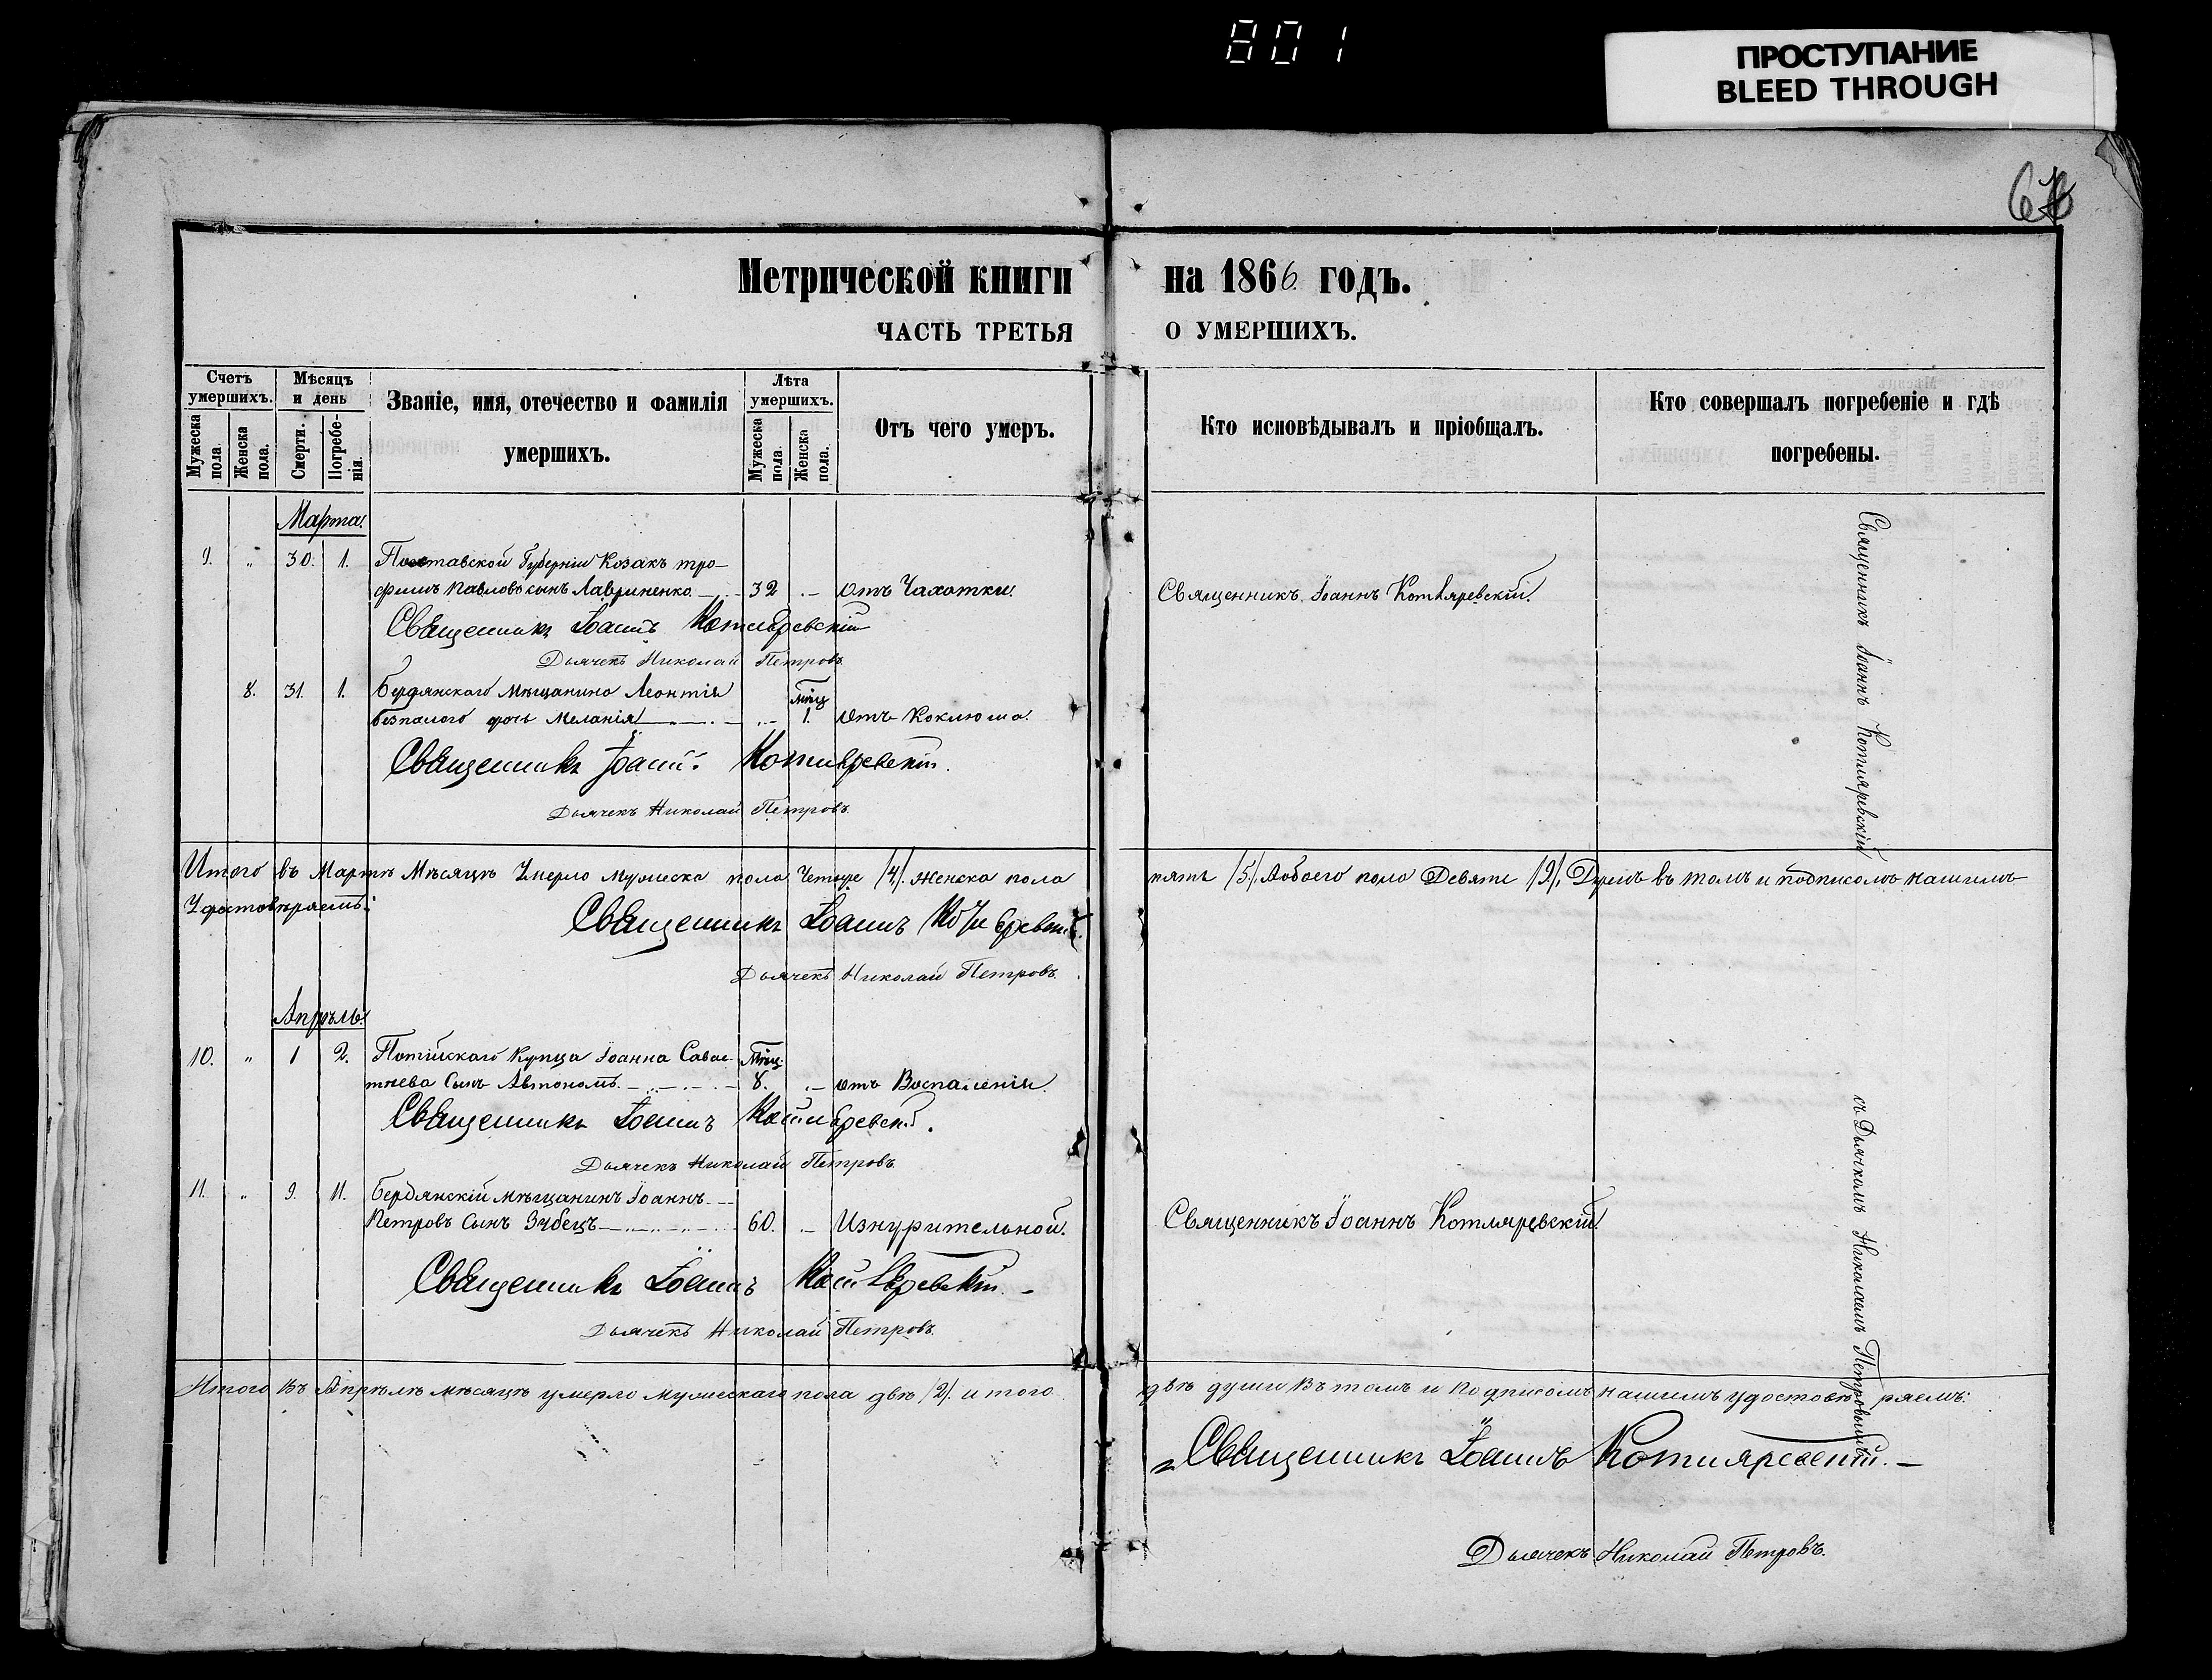 801
ПРОСТУПАНИЕ
BLEED THROUGH
Метрической книги на 1866 годъ.
ЧАСТЬ ТРЕТЬЯ О УМЕРШИХЪ.
Счетъ умершихъ.
Мужеска пола.
Женска пола.
Мѣсяцъ и день
Смерти.
Погребенія.
Званіе, имя, отечество и фамилія умершихъ.
Лѣта умершихъ.
Мужеска пола.
Женска пола.
Отъ чего умеръ.
Кто исповѣдывалъ и пріобщалъ.
Кто совершалъ погребеніе и гдѣ погребены.
Марта.
9. " 30. 1. Полтавской Губерніи Козакъ Тро-
фимъ Павловъ сынъ Лавриненко 32 отъ Чахотки. Священникъ Іоаннъ Котляревскій.
Священникъ Іоаннъ Котляревскій
Дьячекъ Николай Петровъ.
8. 31. 1. Бердянскаго Мѣщанина Леонтія мѣц
безпалого дочь Меланія 1. отъ Коклюша.
Священникъ Іоаннъ Котляревскій.
Дьячекъ Николай Петровъ.
Итого въ Мартѣ Мѣсяцѣ Умерло мужеска пола Четыре /4/. женска пола пять /5/. Аобоего пола Девять /9/. Душъ въ томъ и подписомъ нашимъ
Удостовѣряемъ:
Священникъ Іоаннъ Котляревскій.
Дьячекъ Николай Петровъ.
Апрѣль.
10. " 1 2. Купца Іоанна Савас- Мѣц.
тѣева Сынъ Автономъ. 8. отъ Воспаленія.
Священникъ Іоаннъ Котляревскій.
Дьячекъ Николай Петровъ.
11. " 9. 11. Бердянскій мѣщанинъ Іоаннъ
Петровъ Сынъ Зубецъ 60. Изнурительной. Священникъ Іоаннъ Котляревскій.
Священникъ Іоаннъ Котляревскій.
Дьячекъ Николай Петровъ.
Итого Въ Апрѣлѣ мѣсяцѣ умерло мужескаго пола двѣ /2/. итого двѣ души Въ томъ и подписомъ нашимъ удостовѣряемъ:
Священникъ Іоаннъ Котляревскій.
Дьячекъ Николай Петровъ.
Священникъ Іоаннъ Котляревскій
съ Дьячкомъ Николаемъ Петровымъ